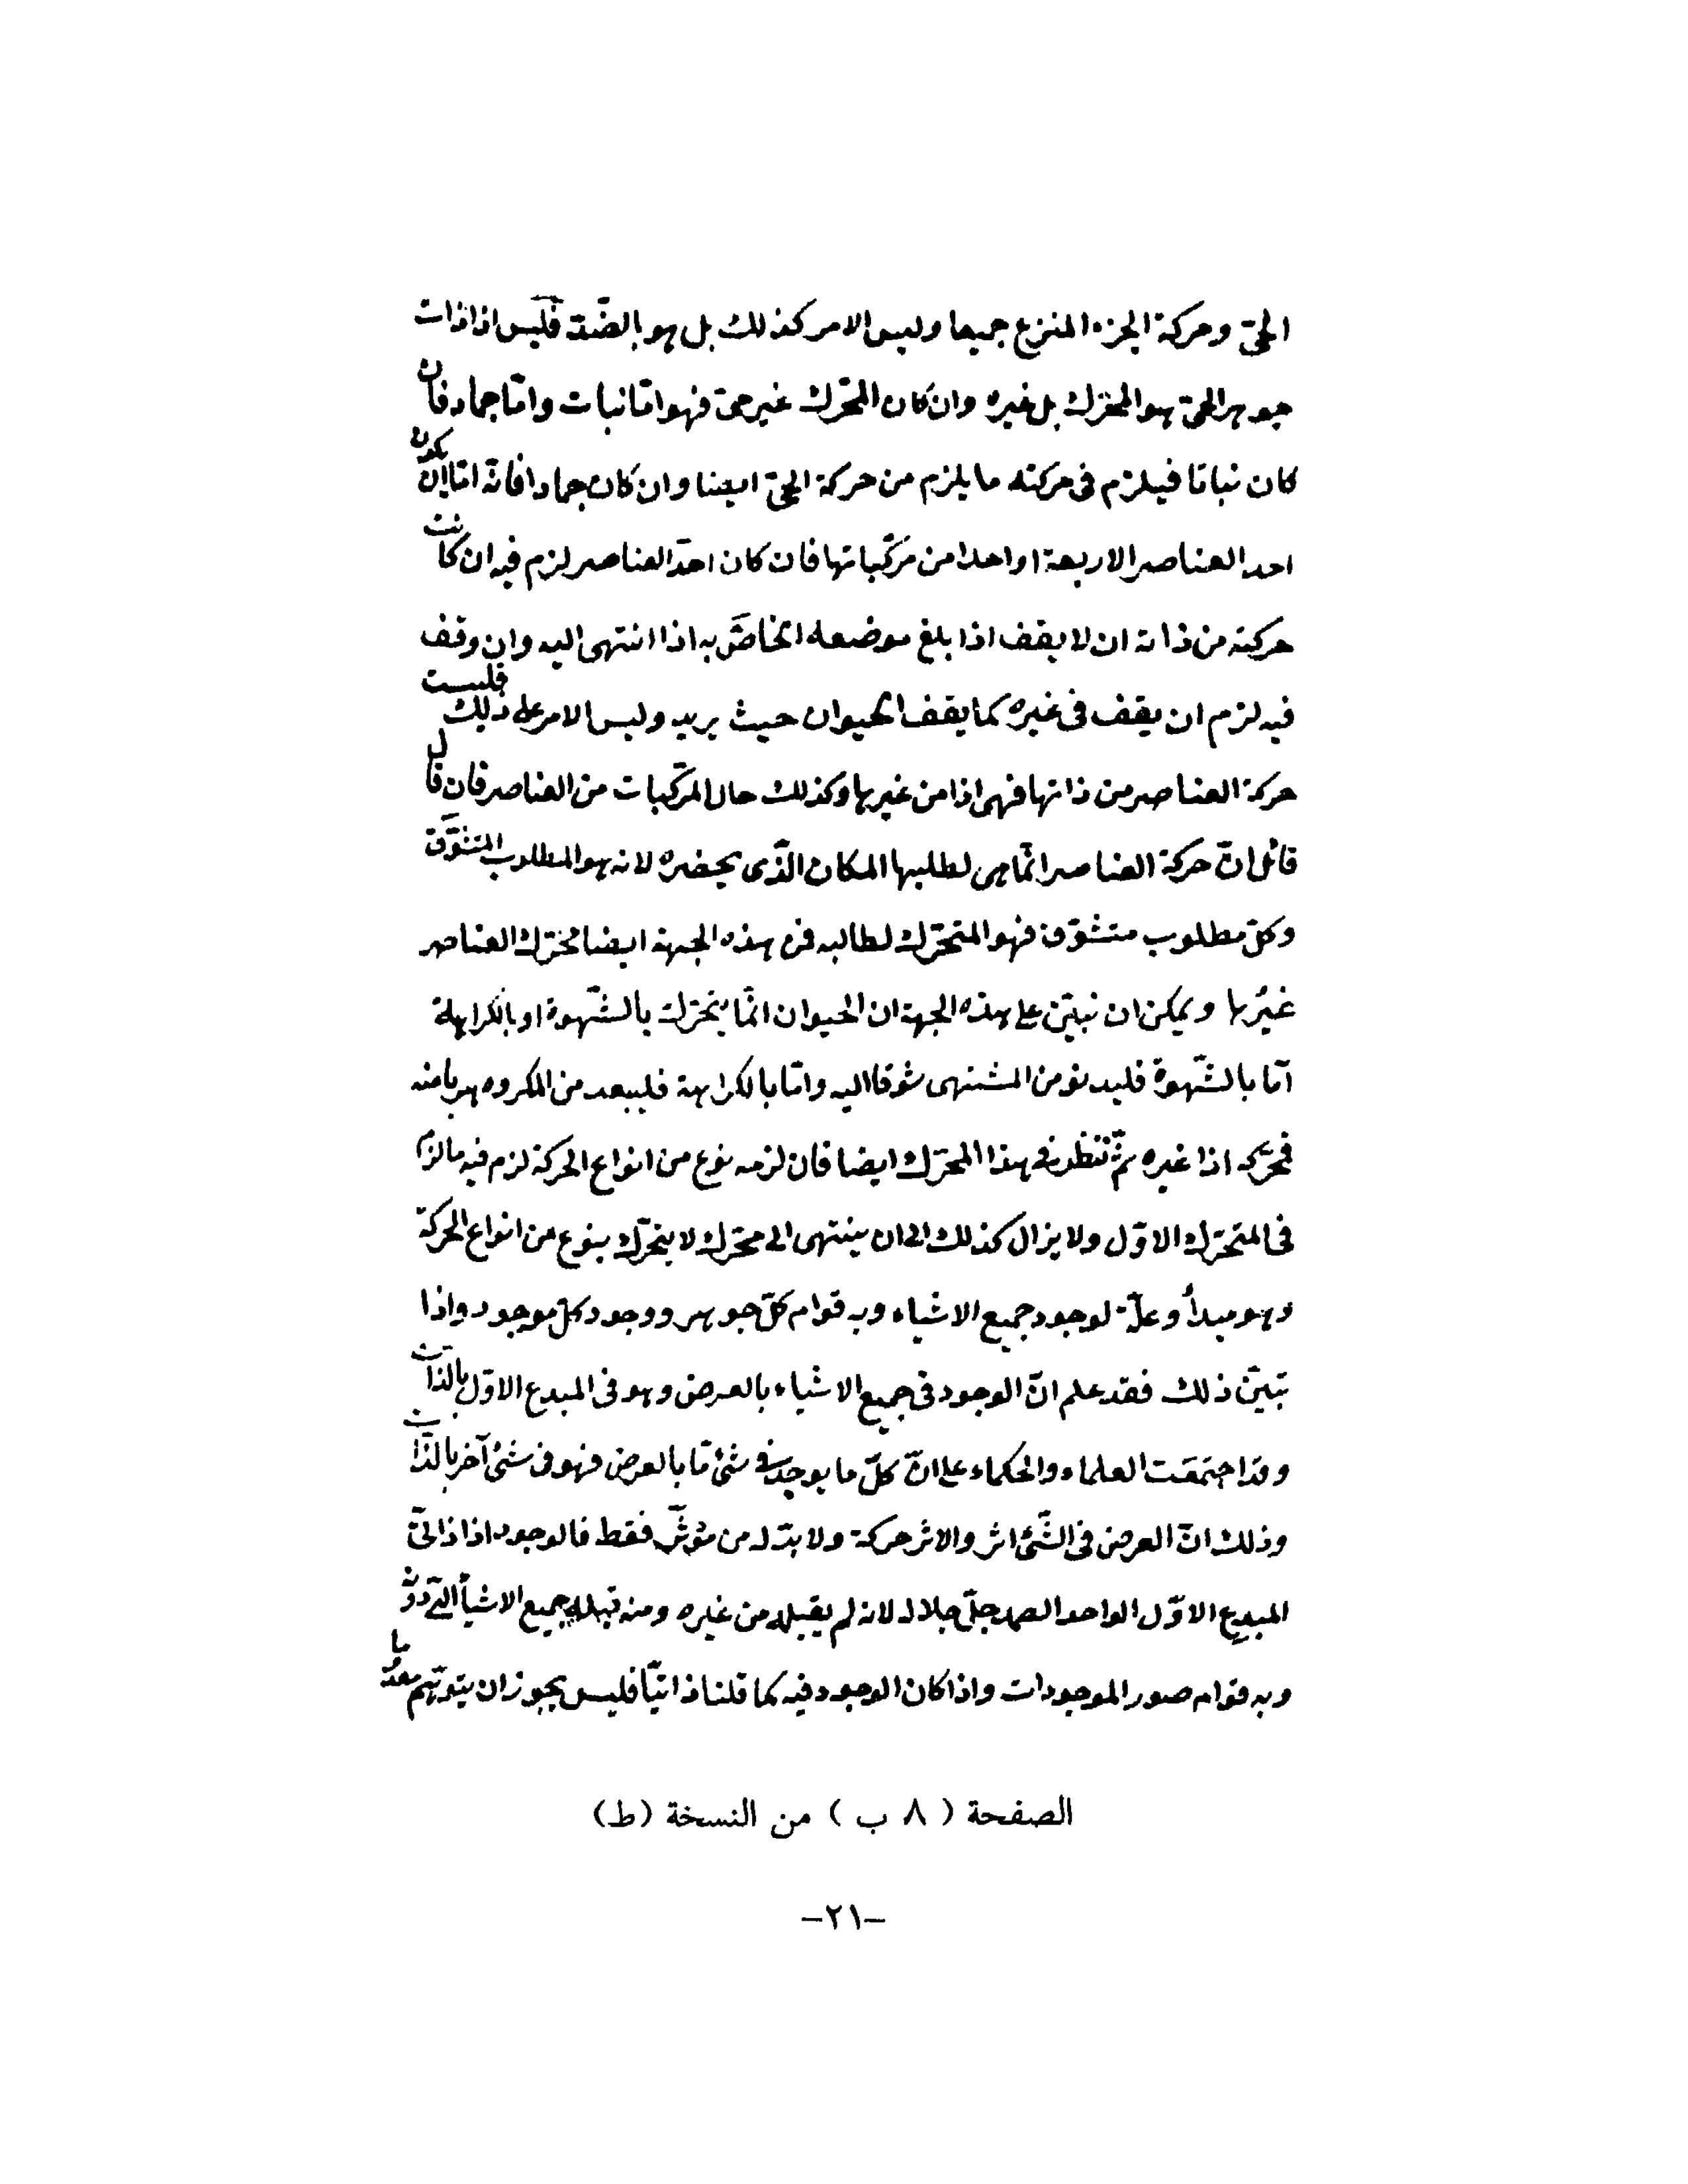 الحىّ وحركة الجزء المنزع جميعا وليس الامر كذلك بل هو بالضّد فليس اذا ذات
جوهر الحىّ هو المحرّك بل غيره وان كان المتحرّك غير حىّ فهو امّا نبات وامّا جماد فان
كان نباتا فيلزم فى حركته ما يلزم من حركة الحىّ ايضا وان كان جمادا فانّه امّا ان يكون
احد العناصر الاربعة او احدا من مركّباتها فان كان احد العناصر لزم فيه ان كانت
حركته من ذاته ان لا يقف اذا بلغ موضعه الخاصّ به اذا انتهى اليه وان وقف
فيه لزم ان يقف فى غيره كما يقف الحيوان حيث يريد وليس الامر على ذلك فليست
حركة العناصر من ذاتها فهى اذا من غيرها وكذلك حال المركّبات من العناصر فان قال
قائل انّ حركة العناصر انّما هى لطلبها المكان الذّى يحضره لانه هو المطلوب المتشوّق
وكلّ مطلوب متشوّق فهو المتحرّك لطالبه فمن هذه الجهة ايضا محرّك العناصر
غيرُها ويمكن ان نبيّن على هذه الجهة ان الحيوان انّما يتحرّك بالشّهوة او بالكراهة
امّا بالشّهوة فليدنو من المشتهى شوقا اليه وامّا بالكراهة فليبعد من المكروه هربا منه
فمحرّكه اذا غيره ثمّ ننظر فى هذا المحرّك ايضا فان لزمه نوع من انواع الحركة لزم فيه ما لزم
فى المتحرّك الاوّل ولا يزال كذلك الى ان ينتهى الى محرّك لا يتحرّك بنوع من انواع الحركة
وهو مبدأ وعلّة لوجود جميع الاشياء وبه قوام كلّ جوهر ووجود كلّ موجود واذا
تبيّن ذلك فقد علم انّ الوجود فى جميع الاشياء بالعرض وهو فى المبدع الاوّل بالذات
وقد اجتمعت العلماء والحكماء على انّ كلّ ما يوجد فى شئ مّا بالعرض فهو فى شئ آخر بالذّات
وذلك انّ العرض فى الشّئ اثر والاثر حركة ولا بدّ له من مؤثّر فقط فالوجود اذا ذاتىّ
المبدع الاوّل الواحد الصمد جلّ جلاله لانه لم يقبله من غيره ومنه قبله جميع الاشياء التّى دونه
وبه قوام صور الموجودات واذا كان الوجود فيه كما قلنا ذاتيّا فليس يجوز ان يتوهّم معدوما
الصفحة ( ٨ ب ) من النسخة (ط)
-٢١-